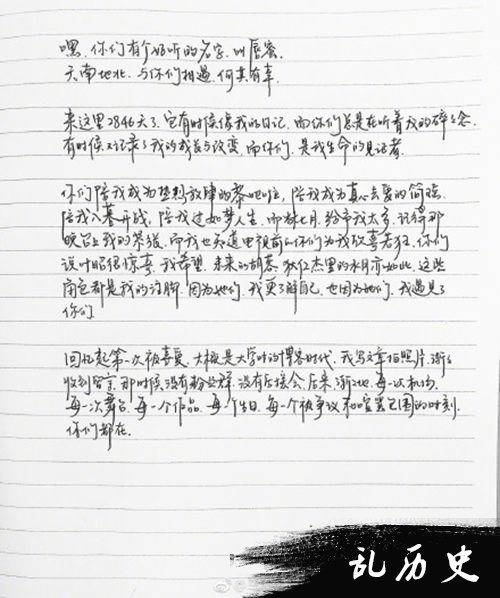 嘿，你们有个好听的名字，叫唇蜜。
天南地北，与你们相遇，何其有幸。
来这里2846天了，它有时候像我的日记，而你们总是在听着我的碎碎念，
有时候又记录了我的成长与改变，而你们，是我生命的见证者。
你们陪我成为热烈放肆的黎吧啦，陪我成为真心去爱的简瑶，
陪我入幕开战，陪我过如梦人生，而林七月，给予我太多，记得那
晚台上我的紧张，而我也知道电视前的你们为我欢喜若狂。你们
说叶昭很惊喜，我希望，未来的胡荞，狄仁杰里的水月亦如此。这些
角色都是我的诗脚，因为她们，我更了解自己，也因为她们，我遇见了
你们。
回忆起第一次被喜爱，大概是大学时的博客时代，我写文章拍照片，渐渐
收到留言，那时候没有粉丝群，没有后援会，后来，渐渐地，每一次机场，
每一次舞台，每一个作品，每一个生日，每一个被争议和喧嚣包围的时刻，
你们都在。
乱历史